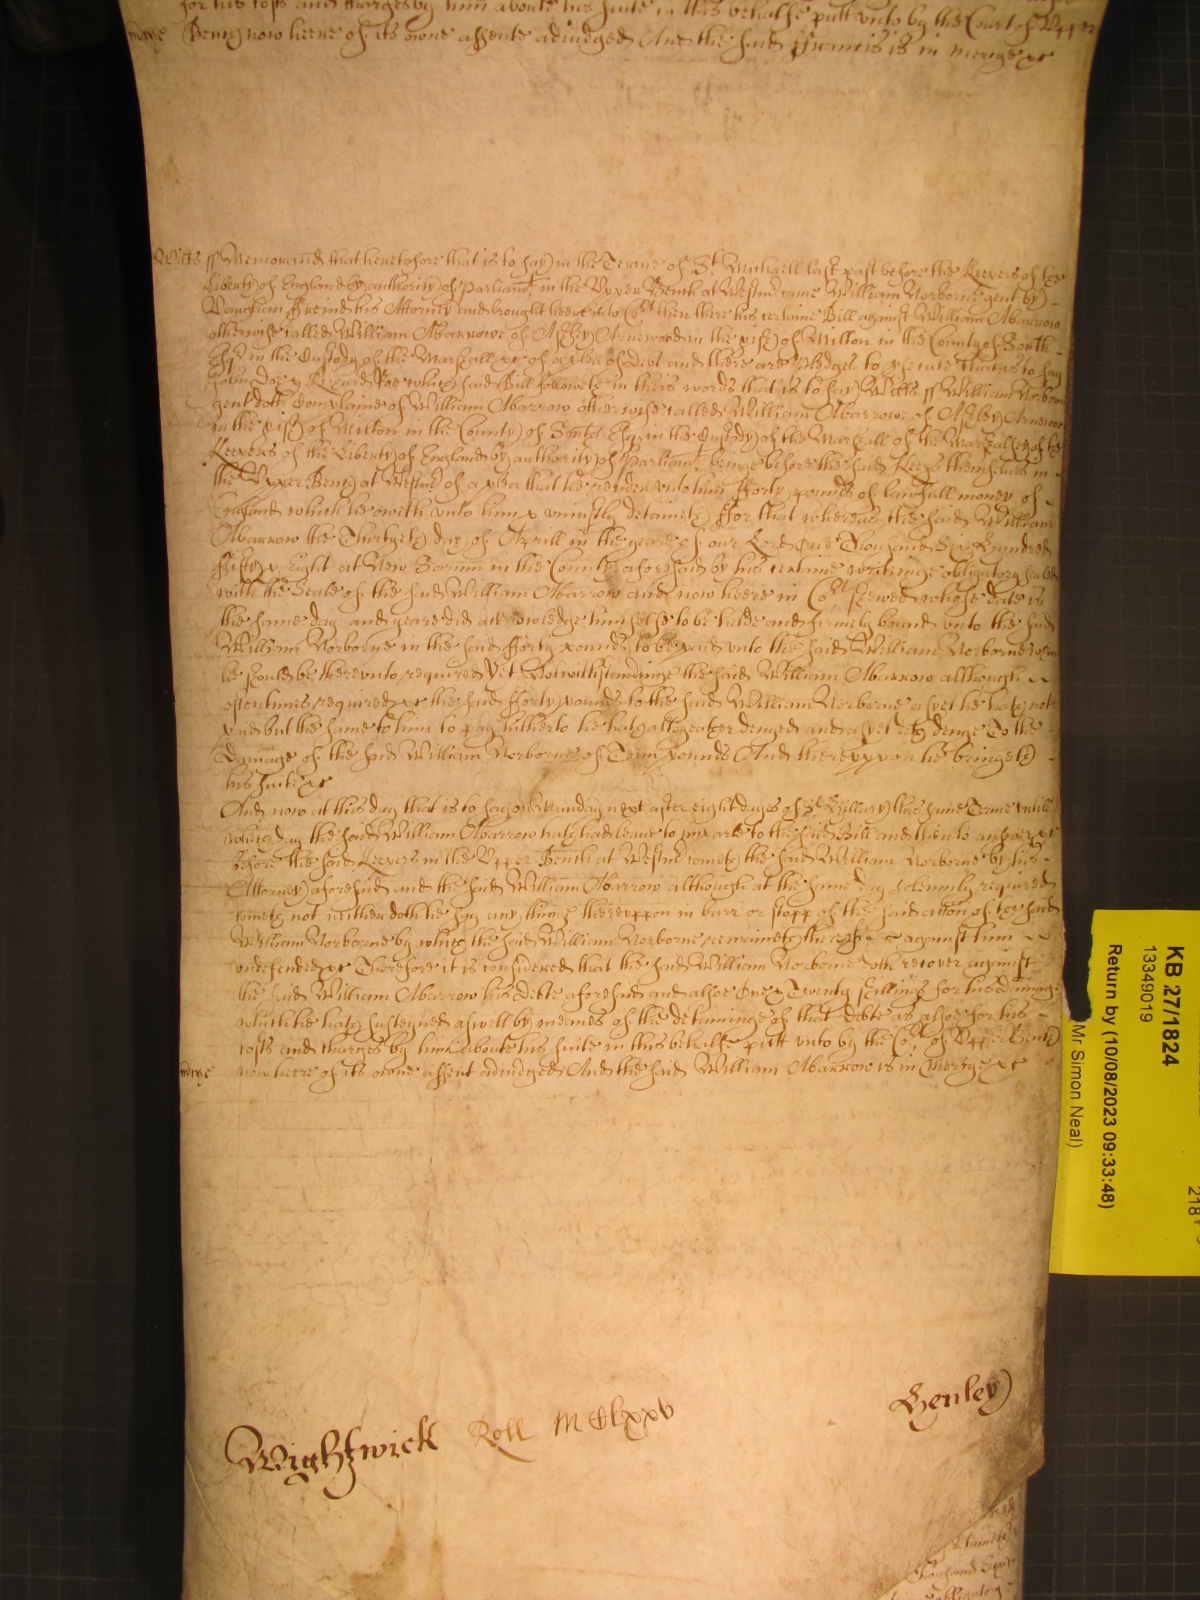 for his costs and charges by him aboute his suite in this behalfe putt unto by the Court of Upper
mercye Bench now heere of its owne assente adiudged And the said Francis is in mercye &c
Wiltes ss Memorand that heretofore that is to say in the Terme of St Michaell last past before the Keepers of the
Liberty of England by authority of Parliamt in the Upper Bench at Westmr came William Norborne gent by
ffreind his Attorney and brought heere into Cort then there his certaine Bill against William Abarrow
otherwise called William Abarrowe of Ashley Arnewood in the pish of Milton in the County of South
Esqr in the Custody of the Marshall &c of a plea of debt and there are pledges to prosecute that is to say
John Doe & Richard Roe which said Bill followeth in theis words that is to say Wiltes ss William Norborne
gent doth Complaine of William Abarrow otherwise called William Abarrowe of Ashley Arnewood
in the pish of Milton in the County of South Esqr in the Custody of the Marshall of the Marshallsey of the
Keepers of the Liberty of England by authority of Parliamt beinge before the said Keeps themselves in
the Upper Bench at Westmr of a plea that he render unto him fforty pounds of lawfull money of
England which he oweth unto him & uniustly detaineth ffor that whereas the said William
Abarrow the Thirtyeth day of Aprill in the yeare of our Lord One Thousand Six Hundred
ffifty & Eight at New Sarum in the County aforesaid by his certaine writinge obligatory sealed
with the Seale of the said William Abarrow and now heere in Cort shewed whose date is
the same day and yeare did acknowledge himselfe to be helde and firmely bound unto the said
William Norborne in the said fforty pounds to be paid unto the said William Norborne when
he should be thereunto required Yet Notwithstandinge the said William Abarrow although
oftentimes required &c the said fforty pounds to the said William Norborne as yet he hath not
paid but the same to him to pay hitherto he hath altogeather denyed and as yet doth denye To the
Damage of the said William Norborne of Tenn pounds And thereuppon he bringeth
his suite &c
And now at this day that is to say on Munday next after eight dayes of St Hillary this same Terme untill
which day the said William Abarrow hath had leave to imparle to the said Bill and then to answere &c
before the said Keepers in the Upper Bench at Westmr cometh the said William Norborne by his
Attorney aforesaid and the said William Abarrow although at the same day solemnly required
cometh not neither doth he say any thinge thereuppon in barr or stopp of the said action of the said
William Norborne by which the said William Norborne remaineth thereof against him
undefended &c Therefore it is considered that the said William Norborne doth recover against
the said William Abarrow his debte aforesaid and alsoe One & Twenty shillings for his damage
which he hath susteyned aswell by meanes of the detaininge of that debte as alsoe for his
costs and charges by him aboute his suite in this behalfe putt unto by the Cort of Upper Bench
mercye now heere of its owne assent adiudged And the said William Abarrow is in Mercye &c
Wightwick Roll MCClxxv Henley
Thousand Six
obligatory
KB 27/1824
13349019
Return by (10/08/2023 09:33:48)
Mr Simon Neal)